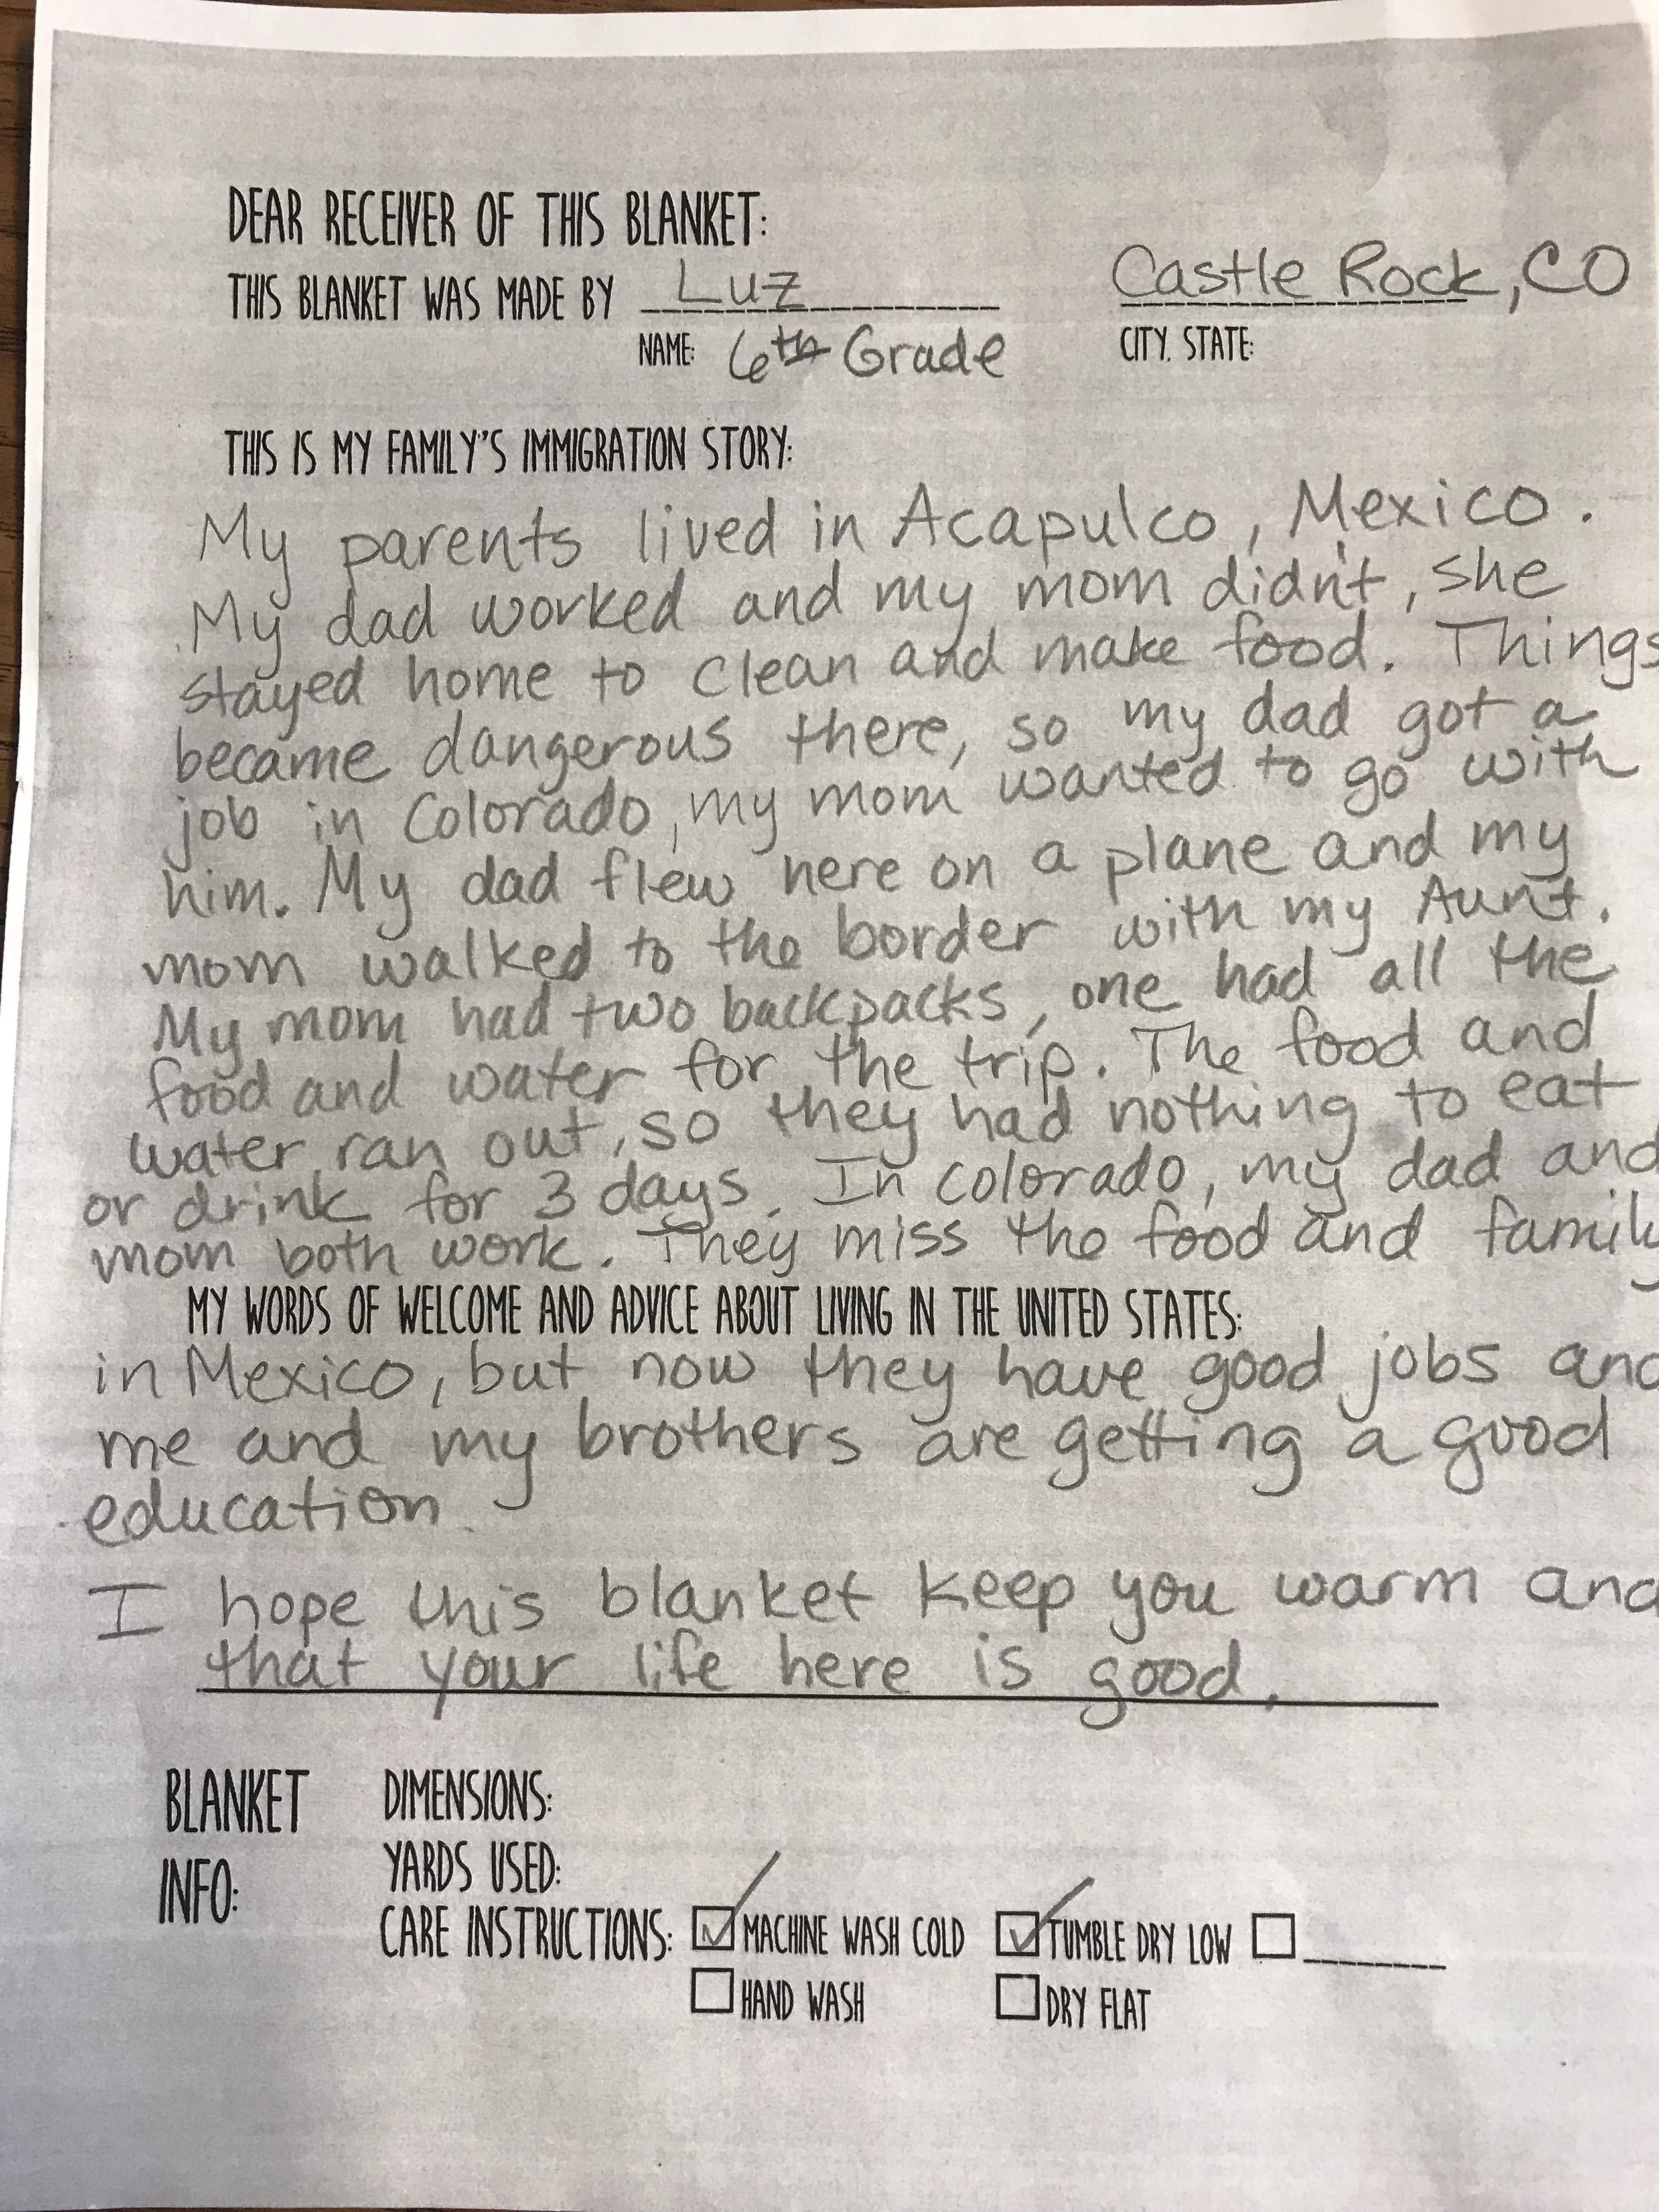 DEAR RECEIVER OF THIS BLANKET:
THIS BLANKET WAS MADE BY Luz Castle Rock, CO
NAME: 6th Grade CITY, STATE:
THIS IS MY FAMILY'S IMMIGRATION STORY:
My parents lived in Acapulco, Mexico.
My dad worked and my mom didn't, she
stayed home to clean and make food. Things
became dangerous there, so my dad got a
job in Colorado, my mom wanted to go with
him. My dad flew here on a plane and my
mom walked to the border with my Aunt.
My mom had two backpacks, one had all the
food and water for the trip. The food and
water ran out, so they had nothing to eat
or drink for 3 days. In Colorado, my dad and
mom both work. They miss the food and family
MY WORDS OF WELCOME AND ADVICE ABOUT LIVING IN THE UNITED STATES:
in Mexico, but now they have good jobs and
me and my brothers are getting a good
education.
I hope this blanket keep you warm and
that your life here is good.
BLANKET INFO:
DIMENSIONS:
YARDS USED:
CARE INSTRUCTIONS: MACHINE WASH COLD TUMBLE DRY LOW
HAND WASH DRY FLAT